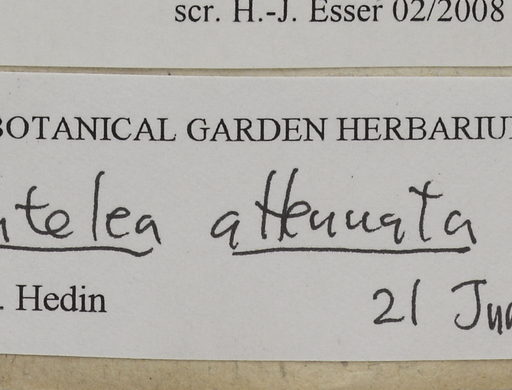 scr. H.-J. Esser 02/2008
BOTANICAL GARDEN HERBARIU
ntelea attenuata
. Hedin 21 Jun